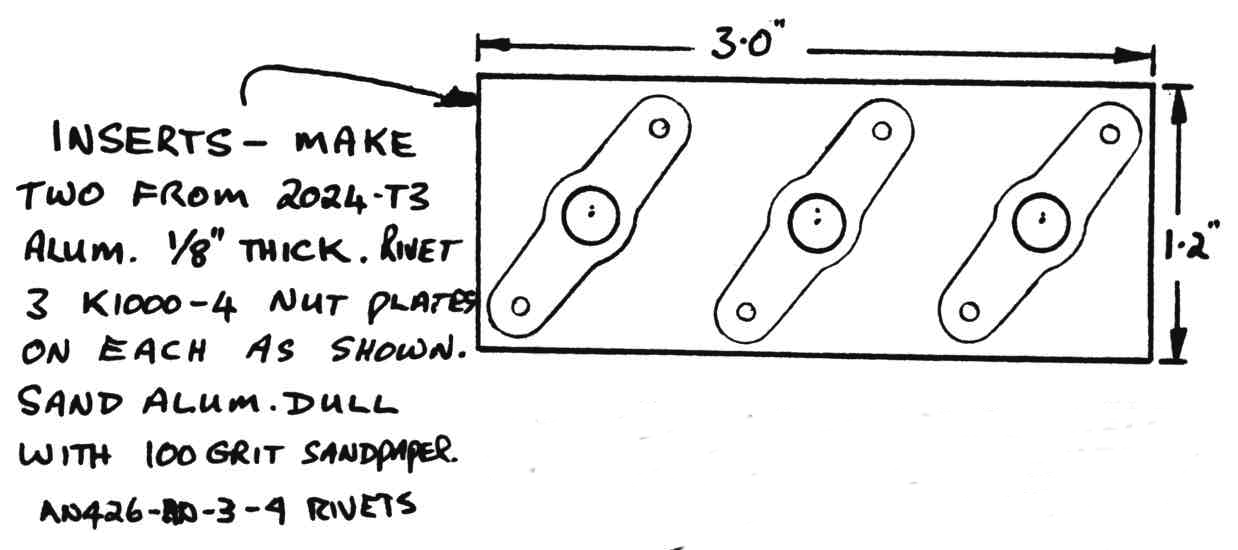 3.0"
INSERTS - MAKE
TWO FROM 2024-T3
ALUM. 1/8" THICK. RIVET
3 K1000-4 NUT PLATES
ON EACH AS SHOWN.
SAND ALUM. DULL
WITH 100 GRIT SANDPAPER.
AN426-AD-3-4 RIVETS
1.2"